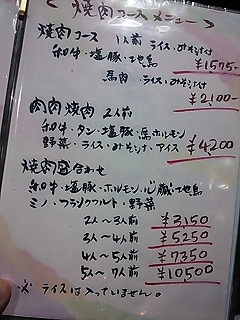 ＜焼肉コース メニュー＞
焼肉コース 1人前 ライス・みそ汁付
和牛・塩豚・地鳥
¥1575-
馬肉・ライス・みそ汁付
¥2,100-
肉肉焼肉 2人前
和牛・タン・塩豚・馬ホルモン
野菜・ライス・みそ汁・アイス ¥4,200
焼肉盛合わせ
和牛・塩豚・ホルモン・地鳥
ミノ・フランクフルト・野菜
2人〜3人前 ¥3,150
3人〜4人前 ¥5250
4人〜5人前 ¥7350
5人〜7人前 ¥10500
※ ライスは入っていません。